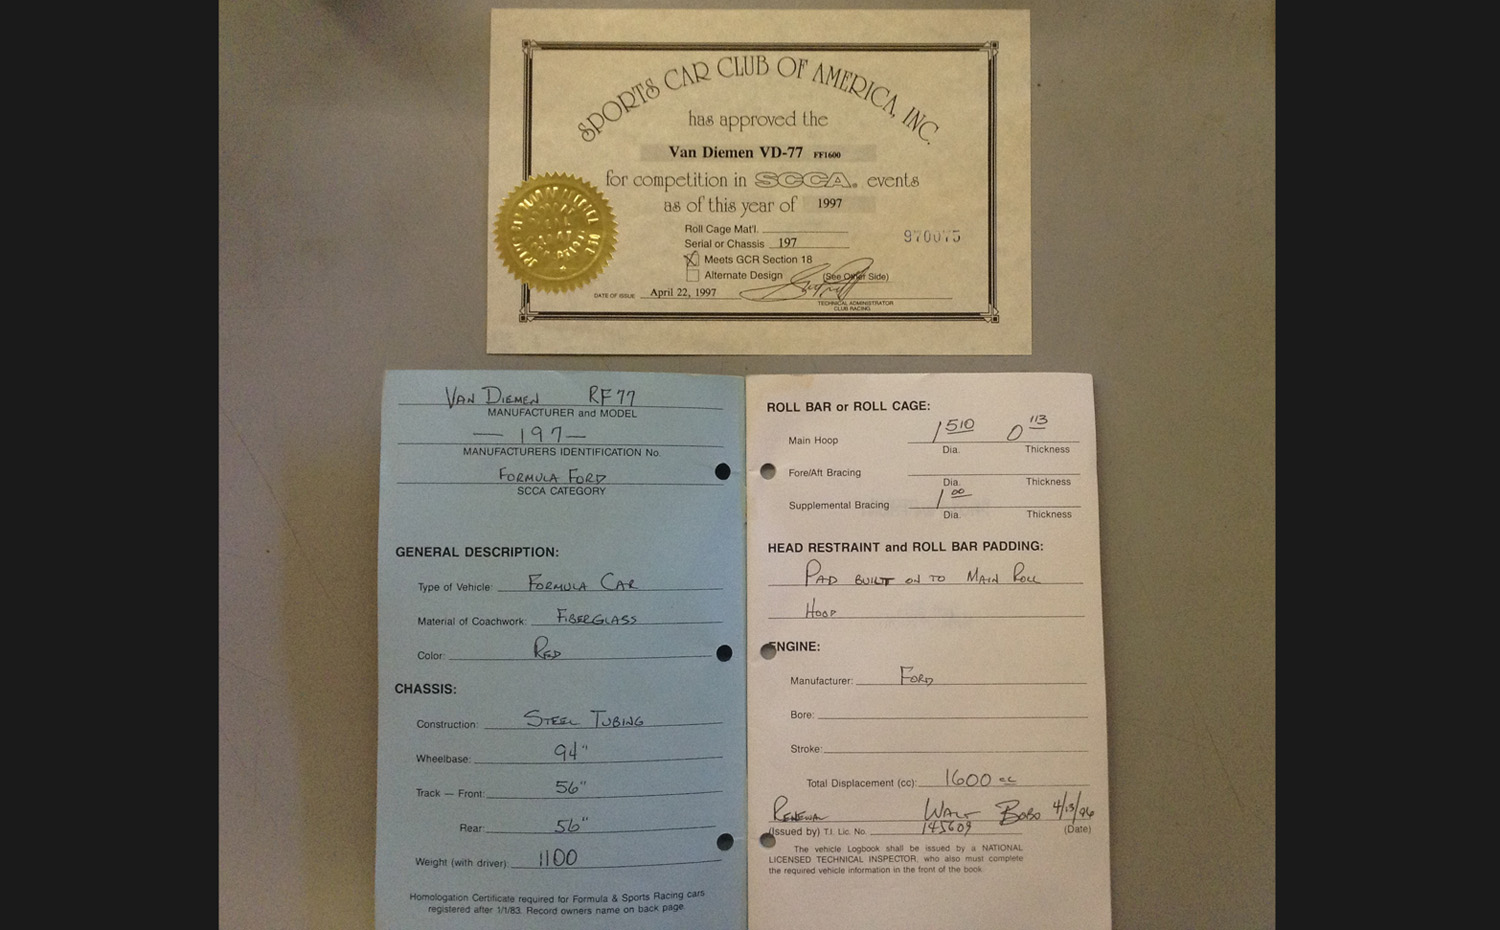 SPORTS CAR CLUB OF AMERICA, INC.
has approved the
Van Diemen VD-77 FF1600
for competition in SCCA. events
as of this year of 1997
Roll Cage Mat'l.
Serial or Chassis 197
970075
X Meets GCR Section 18
Alternate Design (See Other Side)
DATE OF ISSUE April 22, 1997
TECHNICAL ADMINISTRATOR
CLUB RACING
VAN DIEMEN RF 77
MANUFACTURER and MODEL
— 197 —
MANUFACTURERS IDENTIFICATION No.
FORMULA FORD
SCCA CATEGORY
GENERAL DESCRIPTION:
Type of Vehicle: FORMULA CAR
Material of Coachwork: FIBERGLASS
Color: RED
CHASSIS:
Construction: STEEL TUBING
Wheelbase: 94"
Track — Front: 56"
Rear: 56"
Weight (with driver): 1100
Homologation Certificate required for Formula & Sports Racing cars
registered after 1/1/83. Record owners name on back page.
ROLL BAR or ROLL CAGE:
Main Hoop 1 510 0 113
Dia. Thickness
Fore/Aft Bracing
Dia. Thickness
Supplemental Bracing 1 00
Dia. Thickness
HEAD RESTRAINT and ROLL BAR PADDING:
PAD BUILT ON TO MAIN ROLL
HOOP
ENGINE:
Manufacturer: FORD
Bore:
Stroke:
Total Displacement (cc): 1600 cc
RENEWAL WALT BOBO 4/13/96
(Issued by) T.I. Lic. No. 145609 (Date)
The vehicle Logbook shall be issued by a NATIONAL
LICENSED TECHNICAL INSPECTOR, who also must complete
the required vehicle information in the front of the book.